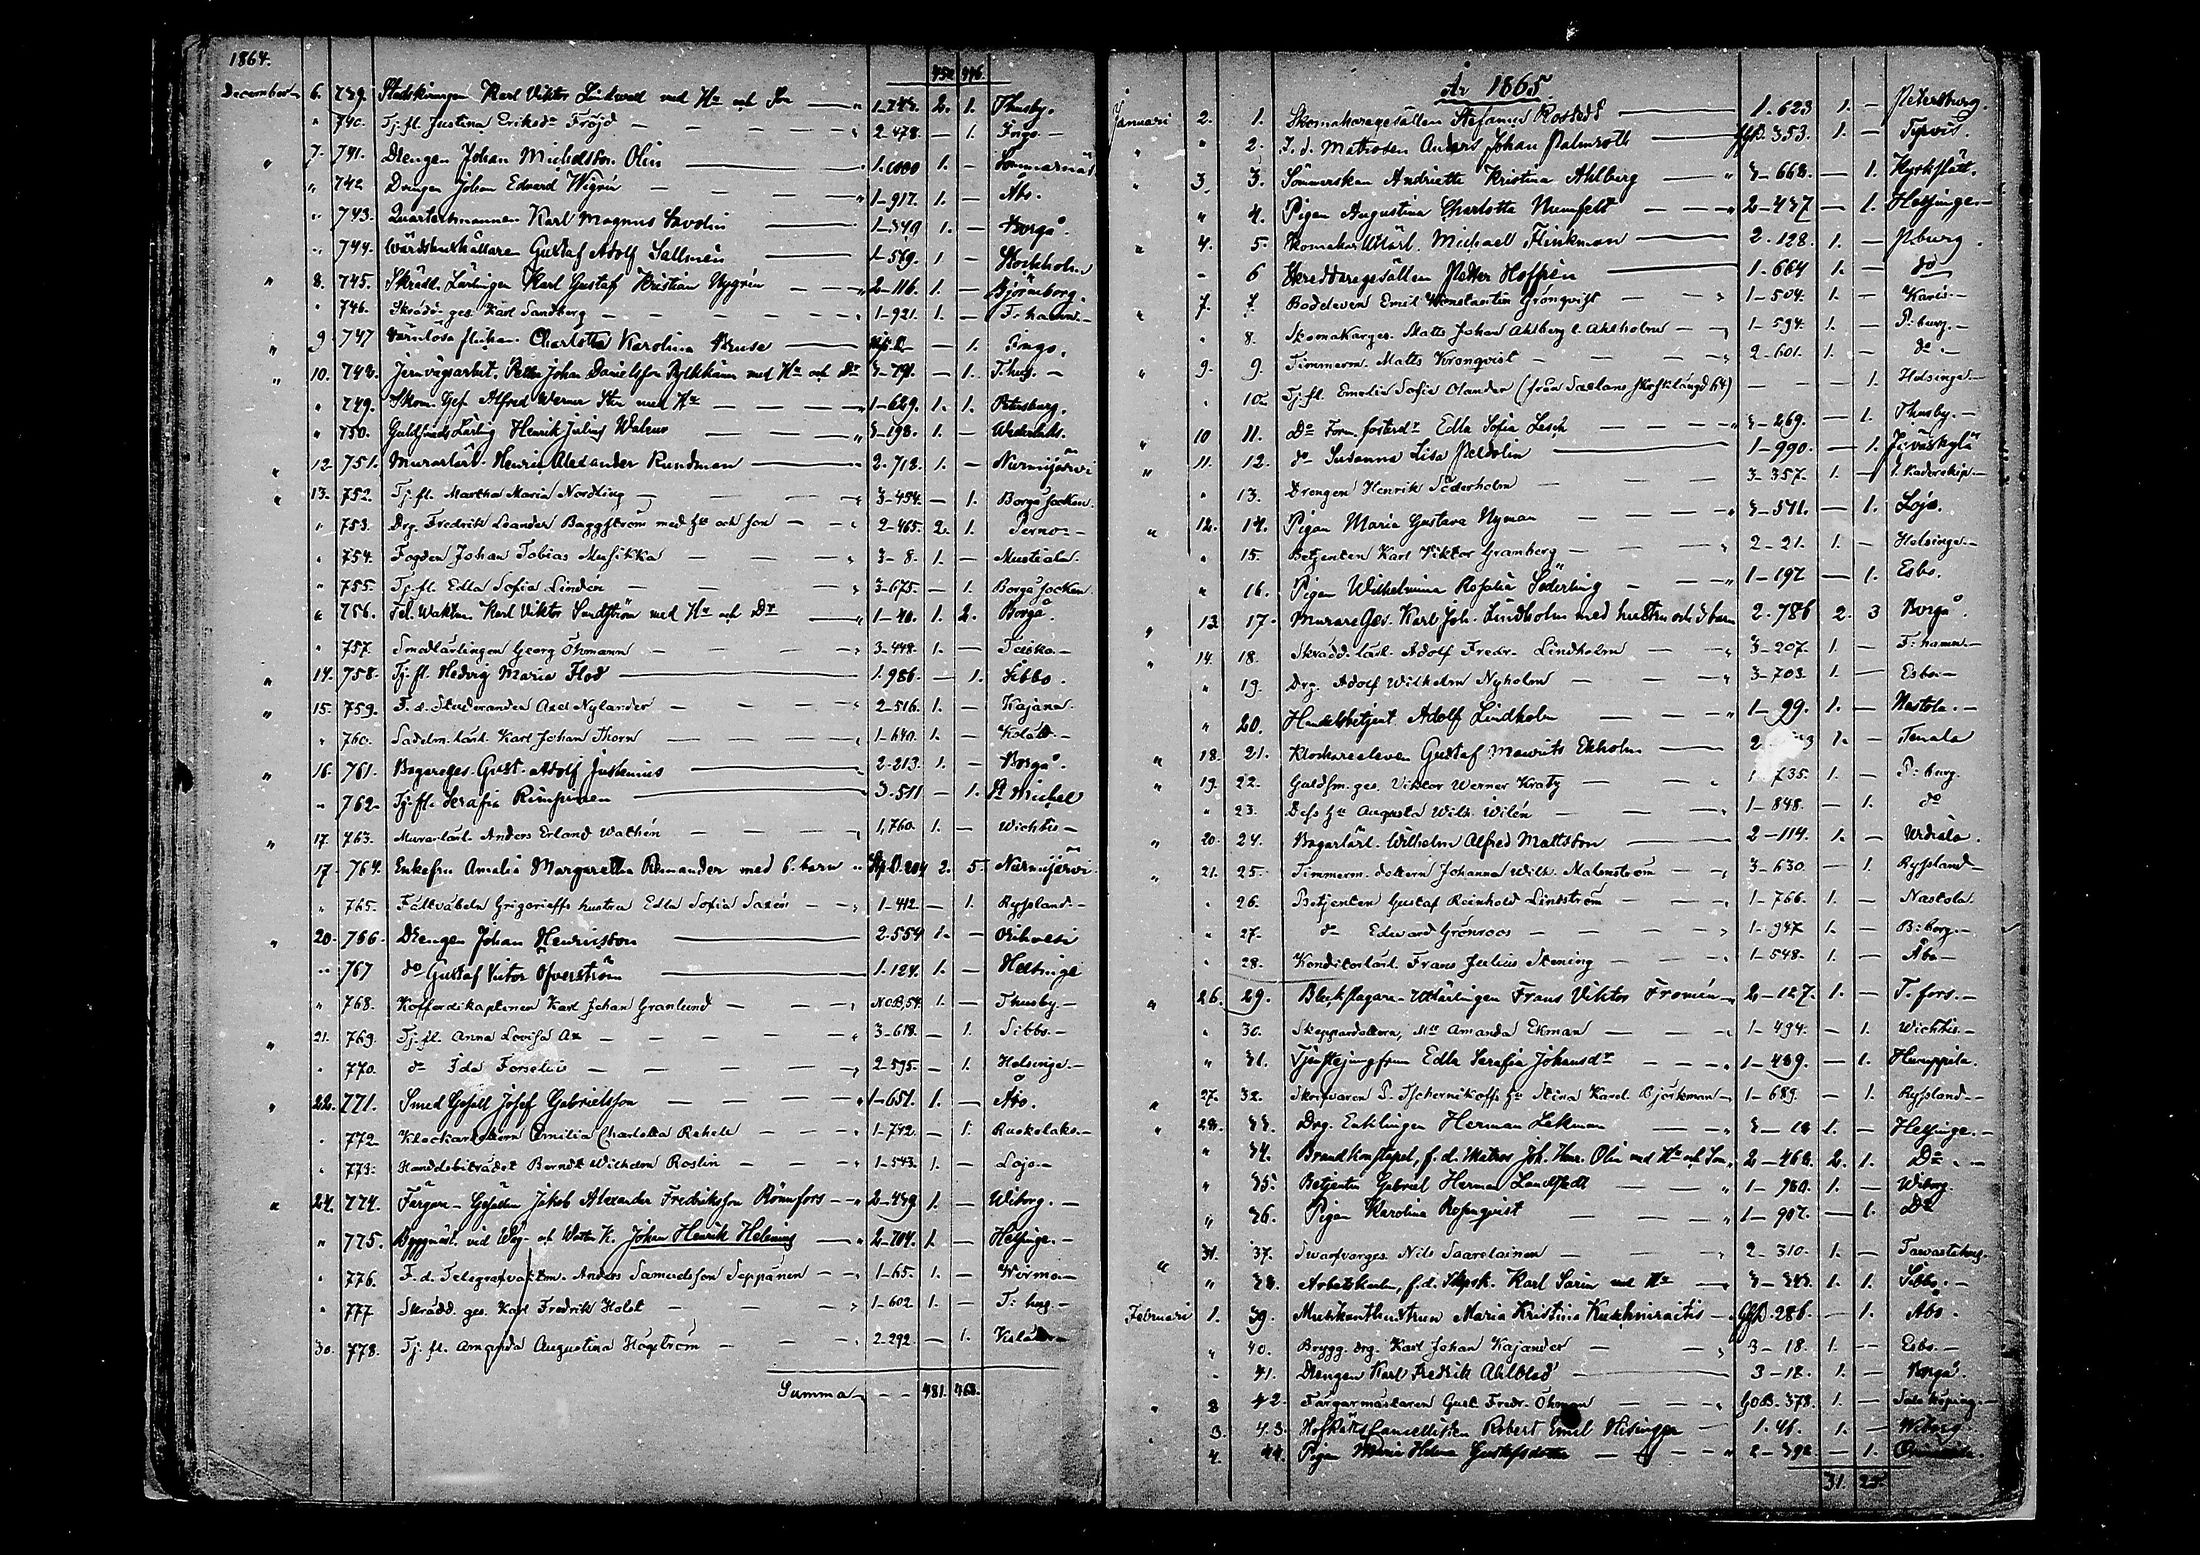 1864.
452 446.
December 6. 739. Stadskirurgen Karl Viktor Lindwall med Hu och Son 1.243. 2. 1. Thusby.
" 740. Tj. fl. Justina Eriksdr Fröjd 2-478. — 1. Ingo —
" 7. 741. Drengen Johan Michelsson Olin 1.1000 1. — Sommarnäs
" 742 Drengen Johan Edvard Wigrén 1-917. 1. — Åbo.
" 743. Quartersmannen Karl Magnus 1-349 1. — Borgå.
" 744. Wärdshushållare Gustaf Adolf Sallmén 1-519. 1 — Stockholm
" 8. 745. Skrädd. Lärlingen Karl Gustaf Kristian Nygrén 2-116. 1. — Björneborg.
" 746. Skrädd. ges. Karl Sandberg 1-921. 1. — F:hamn.—
" 9. 747 Värnlösa flickan Charlotta Karolina — 1. Ingo.
" 10. 748. Jernvägsarbet. Petter Johan Danielsson med Hu och Dr 3-791. — 1. T:hus. —
" 749. Skom. Ges. Alfred Werner Sten med Hu 1-629. 1. 1. Petersburg.
" 750. Guldsmeds Lärling Henrik Julius 3-198. 1. — Wederlaks.
" 12 751. Murarlärl. Henric Alexander Rundman 2-712. 1. — Nurmijärvi
" 13. 752. Tj. fl. Martha Maria Nordling 3-454. — 1. Borgå Socken.
" 753. Drg. Fredrik Leander Baggström med Hu och Son 2-465. 2. 1. Perno —
" 754. Fogden Johan Tobias Musikka 3-8. 1. — Mustiala.
" 755. Tj. fl. Edla Sofia Lindén 3-675. — 1. Borgå Socken.
" 756. Tel. Waktm. Karl Viktor Sundström med Hu och Dr 1-40. 1. 2. Borgå.
" 757. Smedlärlingen Georg Öhmann 3-448. 1. — Teisko.—
" 14. 758. Tj. fl. Hedvig Maria Flod 1.986. — 1. Sibbo.
" 15. 759. F. d. Studeranden Axel Nylander 2-516. 1. — Kajana.
" 760. Sadelm. lärl. Karl Johan Thorn 1-640. 1. —
" 16. 761. Bagareges. Gust. Adolf Juslenius 2-213. 1. — Borgå.
" 762. Tj. fl. Serafia Rimpinen 3.511 — 1. St Michel
" 17. 763. Murarlärl. Anders Erland Wathén 1,760. 1. — Wichtis —
17. 764. Enkefru Amalia Margaretha Renander med 6. barn 204 2. 5. Nurmijärvi
" 765. Fältväbeln Grigorieffs hustru Edla Sofia Saxén 1-412. — 1. Ryssland.—
" 20. 766. Drengen Johan Henricsson 2-554 1. — Orihvesi
" 767 do Gustaf Victor Öfverström 1.124. 1. — Helsinge
" 768. Kofferdikaptenen Karl Johan Granlund N.O.B, 54. 1. — Thusby —
" 21. 769. Tj. fl. Anna Lovisa Ax 3-618. — 1. Sibbo.—
" 770. do Ida Forselius 2-595. — 1. Helsinge.—
" 22. 771. Smed Gesäll Josef Gabrielsson 1-651. 1. — Åbo.
" 772. Klockardottern Emilia Charlotta Rehell 1-742. — 1. Ruokolaks.—
" 773. Handelsbiträdet Berndt Wilhelm Roslin 1-543. 1. — Lojo.—
" 24. 774. Färgare-Gesällen Jakob Alexander Fredriksson Rönnfors 2-439. 1. — Wiborg. —
" 775. Byggmäst. vid Wäg- och Watten K. Johan Henrik Helenius 2-704. 1. — Helsinge.—
" 776. F. d. Telegrafvaktm. Anders Samuelsson Seppänen 1-65. 1. — Wirmo.—
" 777 Skrädd. ges. Karl Fredrik Holst 1-602 1. — T: hus.—
30. 778. Tj. fl. Amanda Augustina Högström 2-292. — 1.
Summa — 481. 468.
År 1865.
Januari 2. 1. Skomakaregesällen Stefanus Rostedt 1.623 1. — Petersburg.
" " 2. F. d. Matrosen Anders Johan Palmroth 353. 1. — Tyrvis.
" 3. 3. Sömmerskan Andriette Kristina Ahlberg 3-668. — 1. Kyrkslätt.
" 4. Pigan Augustina Charlotta Numfelt 2-437 — 1. Helsinge.—
" 4. 5. Skomakar Utlärl. Michael Flinkman 2.128. 1. — Pburg.
" 6 Skreddaregesällen Petter Hoffrén 1-664 1. — do
" 7. 7. Bodeleven Emil Konstantin Grönqvist 1-504. 1. — Karis.—
" 8. Skomakarges. Matts Johan Ahlberg l. Ahlholm 1-594. 1. — P: burg.—
" 9. 9. Timmerm. Matts Kronqvist 2-601. 1. — do —
" 10. Tj. fl. Emelie Sofia Olander — — 1. Helsinge—
" 10 11. Do Form. fosterdr Edla Sofia Lesch 3-269. — 1. Thusby.—
" 11. 12. do Susanna Lisa Peldolin 1-990. — 1. Jyväskylä
" 13. Drengen Henrik Söderholm 3-357. 1. —
" 12. 14. Pigan Maria Gustava Nyman 3-571. — 1. Lojo.
" 15. Betjenten Karl Viktor Granberg 2-21. 1. — Helsinge.—
" 16. Pigan Wilhelmina Rosalia Söderling 1-197 — 1. Esbo.
" 13. 17. Murare Ges. Karl Joh. Lindholm med hustru och 3 barn 2.786 2. 3 Borgå.
" 14. 18. Skrädd. lärl. Adolf Fredr. Lindholm 3-207. 1. — F: hamn.—
" 19. Drg. Adolf Wilhelm Nyholm 3-703. 1. — Esbo —
" 20. Handelsbetjent. Adolf Lindholm 1-99. 1. — Nastola.—
" 18. 21. Klockareeleven Gustaf Mauritz Ekholm 2 3 1. — Tenala
" 19. 22. Guldsm. ges. Viktor Werner Kratz 735. 1. — P: burg.
" 23. Dess Hu Augusta Wilh. Wilén 1-848. — 1. do
" 20. 24. Bagarlärl. Wilhelm Alfred Mattsson 2-114. 1. — Urdiala.
" 21. 25. Timmerm. dottern Johanna Wilh. Malmström 3-630. — 1. Ryssland—
" 26. Betjenten Gustaf Reinhold Lindström 1-766. 1. — Nastola.
" 27. do Edward Grönroos 1-947 1. — B: borg.—
" 28. Konditorlärl. Frans Julius Stening 1-548. 1. — Åbo —
" 26. 29. Bleckslagare-Utlärlingen Frans Viktor Fromén 2-127. 1. — T. fors.—
" 30. Skeppardottern, Mll Amanda Ekman 1-494. — 1. Wichtis.—
" 31. Tjenstejungfrun Edla Serafia Johansdr 1-489. — 1. Humppila.
" 27. 32. Skrifvaren P. Tschernikoffs Hu Stina Karol. Björkman 1-689. — 1. Ryssland.—
" 28. 33. Drg. Enklingen Herman Lekman 3-18 1. — Helsinge.—
" 34. Brandkonstapel, f. d. Matros Joh. Henr. Olin med Hu och Son 2-462. 2. 1. Do —
" 35. Betjenten Gabriel Herman Landstedt 1-980. 1. — Wiborg.
" 36. Pigan Karolina Rosenqvist 1-907. — 1. Do
" 31. 37. Swarfvarges. Nils Saarelainen 2-310. 1. — Tawastehus.
" 38. Arbetskarln, f. d. Karl Sarin med Hu 3-343. 1. 1. Sibbo.—
Februari 1. 39. Musikanthustrun Maria Kristina 286. — 1. Åbo.
" 40. Brygg. drg. Karl Johan Kajander 3-18. 1. — Esbo.—
" 41. Drengen Karl Fredrik Ahlblad 3-12. 1. — Borgå.
" 2 42. Färgarmästaren Gust. Fredr. Öhman G.O.B. 378. 1. —
3. 43. Hofrätts Cancellisten Robert Emil Hisinger 1.46. 1. — Wiborg
4. 44. Pigan Maria Helena Gustafsdotter 2-392 — 1.
31. 25.